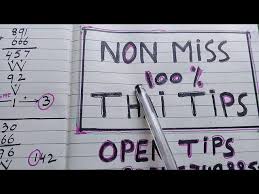 891
666
457
92
1 → 3
30
666
96
142
NON MISS
100%
THAI TIPS
OPEN TIPS